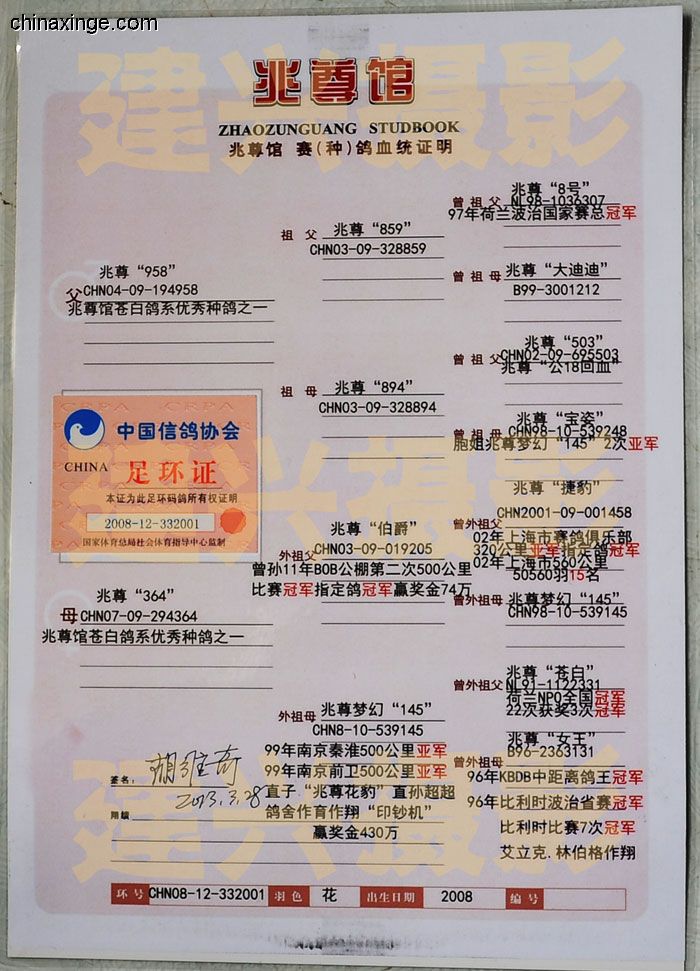 chinaxinge.com
建兴摄影
兆尊馆
ZHAOZUNGUANG STUDBOOK
兆尊馆 赛(种)鸽血统证明
兆尊“958”
父 CHN04-09-194958
兆尊馆苍白鸽系优秀种鸽之一
祖父 兆尊“859”
CHN03-09-328859
曾祖父 兆尊“8号”
NL98-1036307
97年荷兰波治国家赛总冠军
曾祖母 兆尊“大迪迪”
B99-3001212
祖母 兆尊“894”
CHN03-09-328894
曾祖父 兆尊“503”
CHN02-09-695503
兆尊“公18回血”
曾祖母 兆尊“宝姿”
CHN98-10-539248
胞姐兆尊梦幻“145”2次亚军
建兴摄影
中国信鸽协会
CHINA 足环证
本证为此足环码鸽所有权证明
2008-12-332001
国家体育总局社会体育指导中心监制
兆尊“364”
母 CHN07-09-294364
兆尊馆苍白鸽系优秀种鸽之一
外祖父 兆尊“伯爵”
CHN03-09-019205
曾孙11年BOB公棚第二次500公里
比赛冠军指定鸽冠军赢奖金74万
曾外祖父 兆尊“捷豹”
CHN2001-09-001458
02年上海市赛鸽俱乐部
320公里亚军指定鸽冠军
02年上海市560公里
50560羽15名
曾外祖母 兆尊梦幻“145”
CHN98-10-539145
外祖母 兆尊梦幻“145”
CHN8-10-539145
99年南京秦淮500公里亚军
99年南京前卫500公里亚军
直子“兆尊花豹”直孙超超
鸽舍作育作翔“印钞机”
赢奖金430万
曾外祖父 兆尊“苍白”
NL91-1122331
荷兰NPO全国冠军
22次获奖3次冠军
曾外祖母 兆尊“女王”
B96-2363131
96年KBDB中距离鸽王冠军
96年比利时波治省赛冠军
比利时比赛7次冠军
艾立克.林伯格作翔
签名:
2013.3.28
建兴摄影
环号 CHN08-12-332001 羽色 花 出生日期 2008 编号